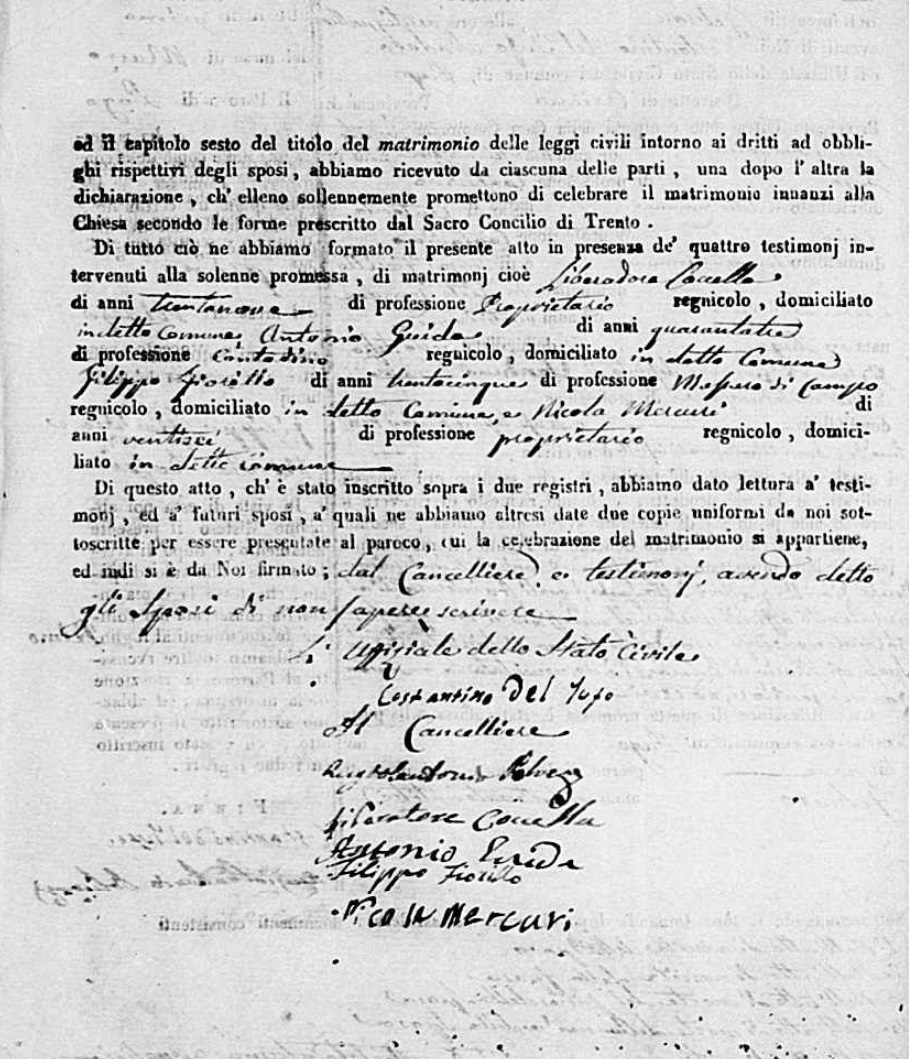 ed il capitolo sesto del titolo del matrimonio delle leggi civili intorno ai dritti ad obbli-
ghi rispettivi degli sposi, abbiamo ricevuto da ciascuna delle parti, una dopo l' altra la
dichiarazione, ch' elleno sollennemente promettono di celebrare il matrimonio innanzi alla
Chiesa secondo le forme prescritto dal Sacro Concilio di Trento.
Di tutto ciò ne abbiamo formato il presente atto in presenza de' quattro testimonj in-
tervenuti alla solenne promessa, di matrimonj cioè Liberadore Covella
di anni trentanove di professione Proprietario regnicolo, domiciliato
in detto Comune, Antonio Guida di anni quarantatre
di professione Contadino regnicolo, domiciliato in detto Comune
Filippo Fiorillo di anni trentacinque di professione Massaro di Campo
regnicolo, domiciliato in detto Comune, e Nicola Mercuri di
anni ventisei di professione proprietario regnicolo, domici-
liato in detto comune
Di questo atto, ch' è stato inscritto sopra i due registri, abbiamo dato lettura a' testi-
monj, ed a' futuri sposi, a' quali ne abbiamo altresì date due copie uniformi da noi sot-
toscritte per essere presentate al paroco, cui la celebrazione del matrimonio si appartiene,
ed indi si è da Noi firmato; dal Cancelliere, e testimonj, avendo detto
gli Sposi di non sapere scrivere
L' Uffiziale dello Stato Civile
Costantino Del Jugo
Il Cancelliere
Liberatore Covella
Antonio Guida
Filippo Fiorillo
Nicola Mercuri